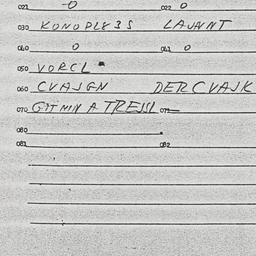 021 -0 022 0
030 KONOPLE3S LAJNNT
040 0 041 0
050 VORCL
060 CVAJGN DERCVAJK
070 GITMIN A TRESSL 071
080
081 082